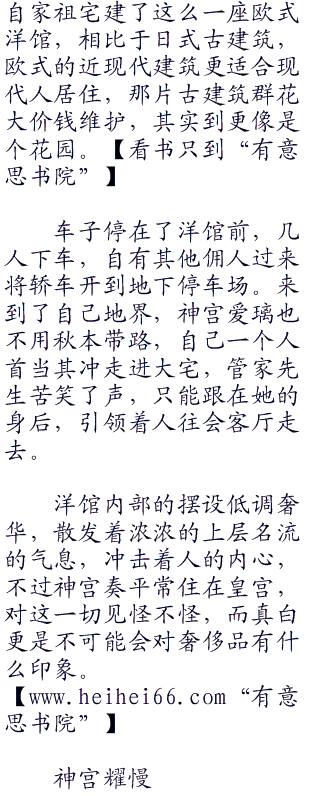 自家祖宅建了这么一座欧式
洋馆，相比于日式古建筑，
欧式的近现代建筑更适合现
代人居住，那片古建筑群花
大价钱维护，其实到更像是
个花园。【看书只到“有意
思书院”】
车子停在了洋馆前，几
人下车，自有其他佣人过来
将轿车开到地下停车场。来
到了自己地界，神宫爱璃也
不用秋本带路，自己一个人
首当其冲走进大宅，管家先
生苦笑了声，只能跟在她的
身后，引领着人往会客厅走
去。
洋馆内部的摆设低调奢
华，散发着浓浓的上层名流
的气息，冲击着人的内心，
不过神宫奏平常住在皇宫，
对这一切见怪不怪，而真白
更是不可能会对奢侈品有什
么印象。
【www.heihei66.com“有意
思书院”】
神宫耀慢